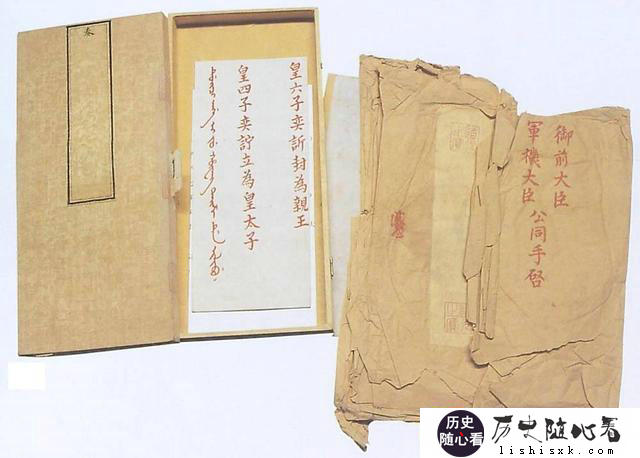 奏
皇六子奕訢封為親王
皇四子奕詝立為皇太子
御前大臣
軍機大臣
公同手啓
历史
随心看
历史随心看
lishisxk.com